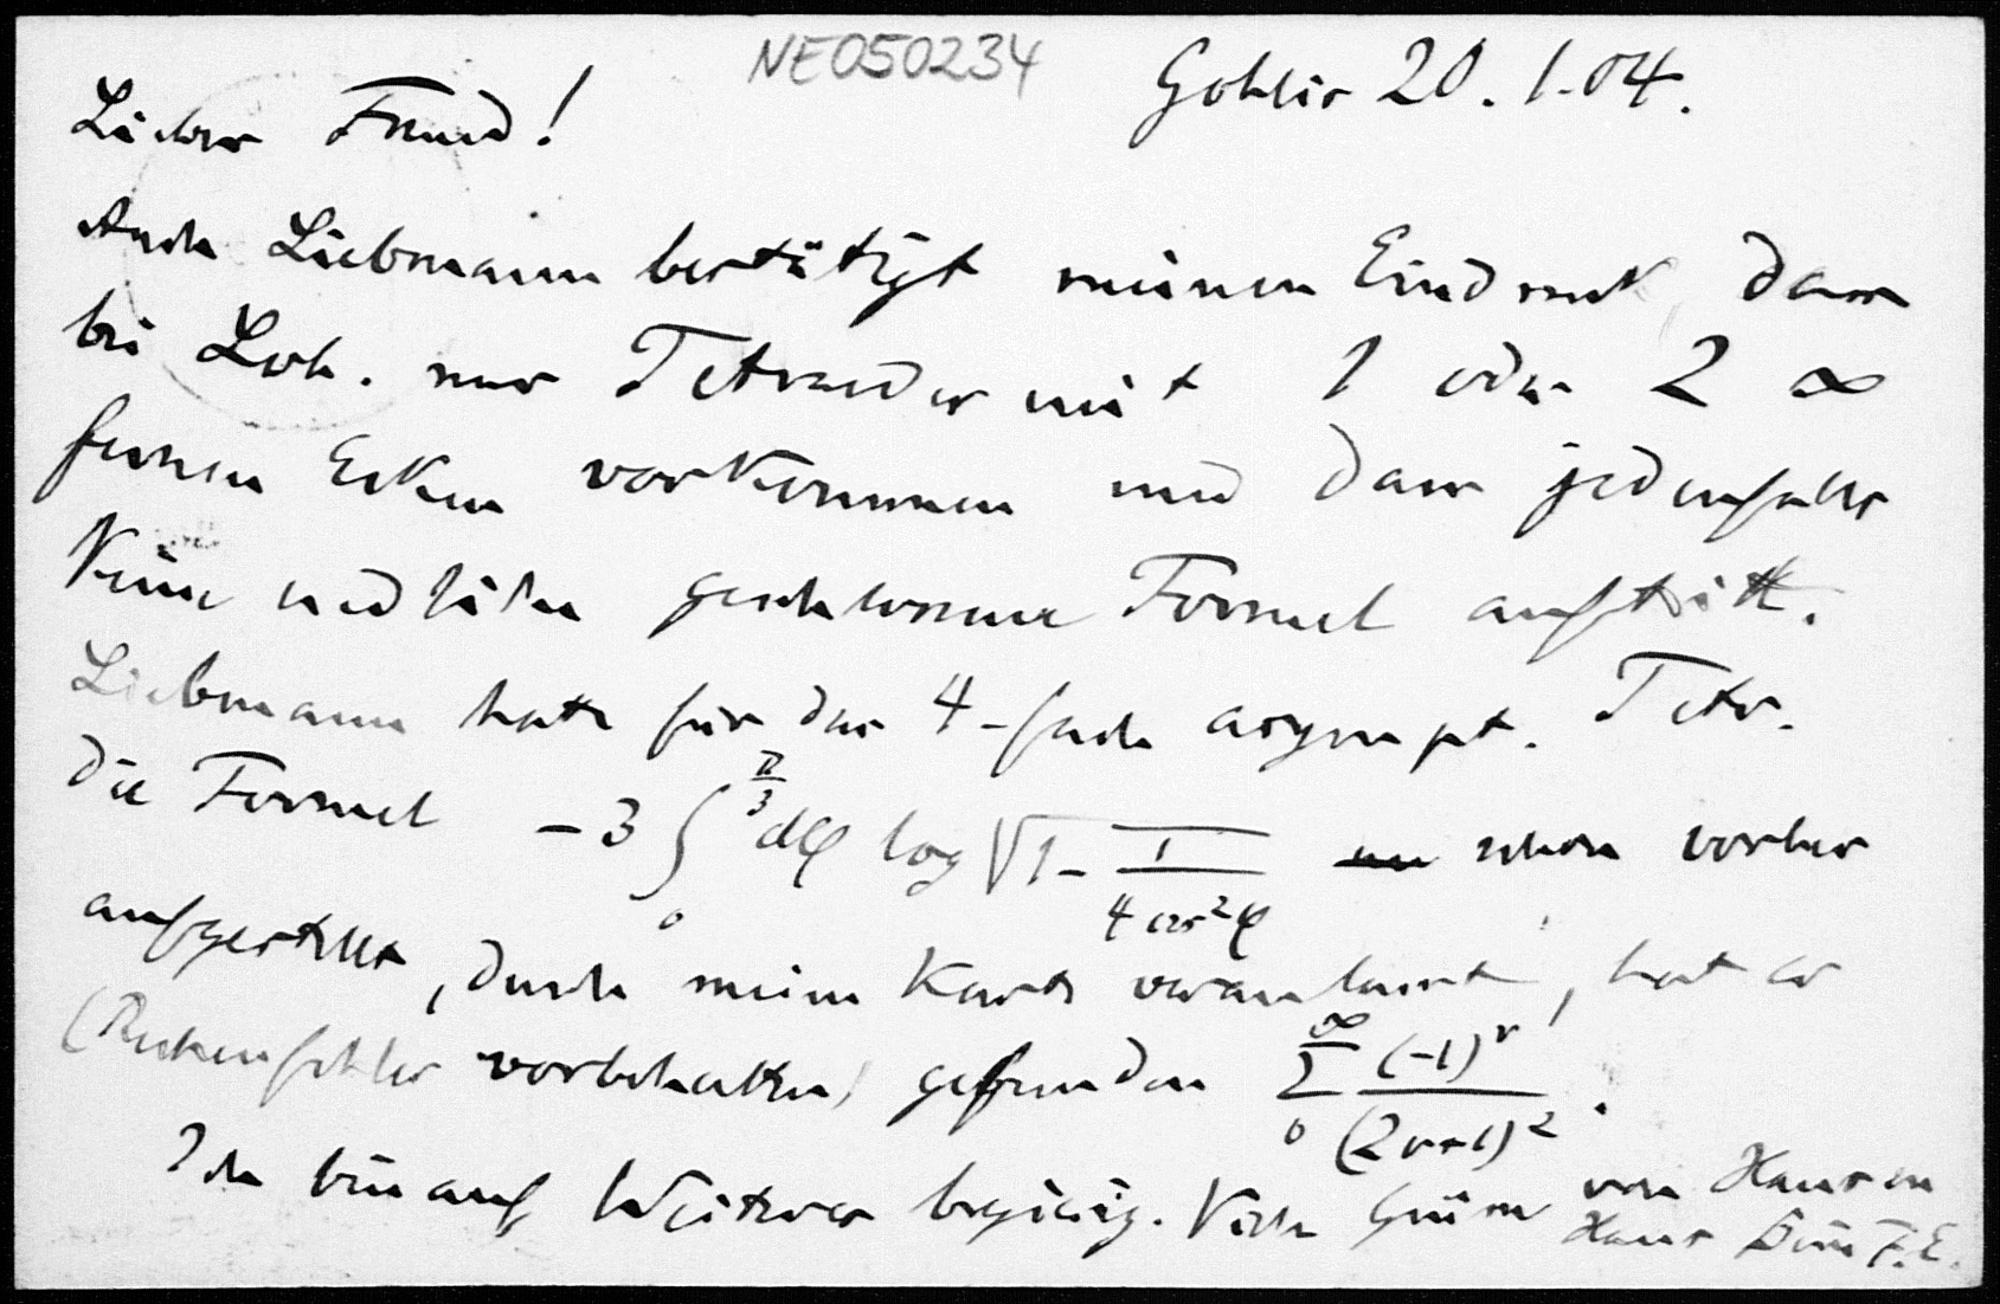 NE050234
Gohlis 20. 1. 04.
Lieber Freund!
Auch Liebmann bestätigt meinen Eindruck, dass
bei Lob. nur Tetraeder mit 1 oder 2 ∞
fernen Ecken vorkommen und dass jedenfalls
keine endliche geschlossene Formel auftritt.
Liebmann hatte für das 4-fach asympt. Tetr.
die Formel −3 ∫₀^{π/3} dφ log √(1 − 1/(4 cos²φ)) schon vorher
aufgestellt, durch meine Karte veranlasst, hat er
(Rechenfehler vorbehalten) gefunden ∑₀^∞ (−1)^ν/(2ν+1)².
Ich bin auf Weiteres begierig. Viele Grüsse von Haus zu
Haus Dein F.E.